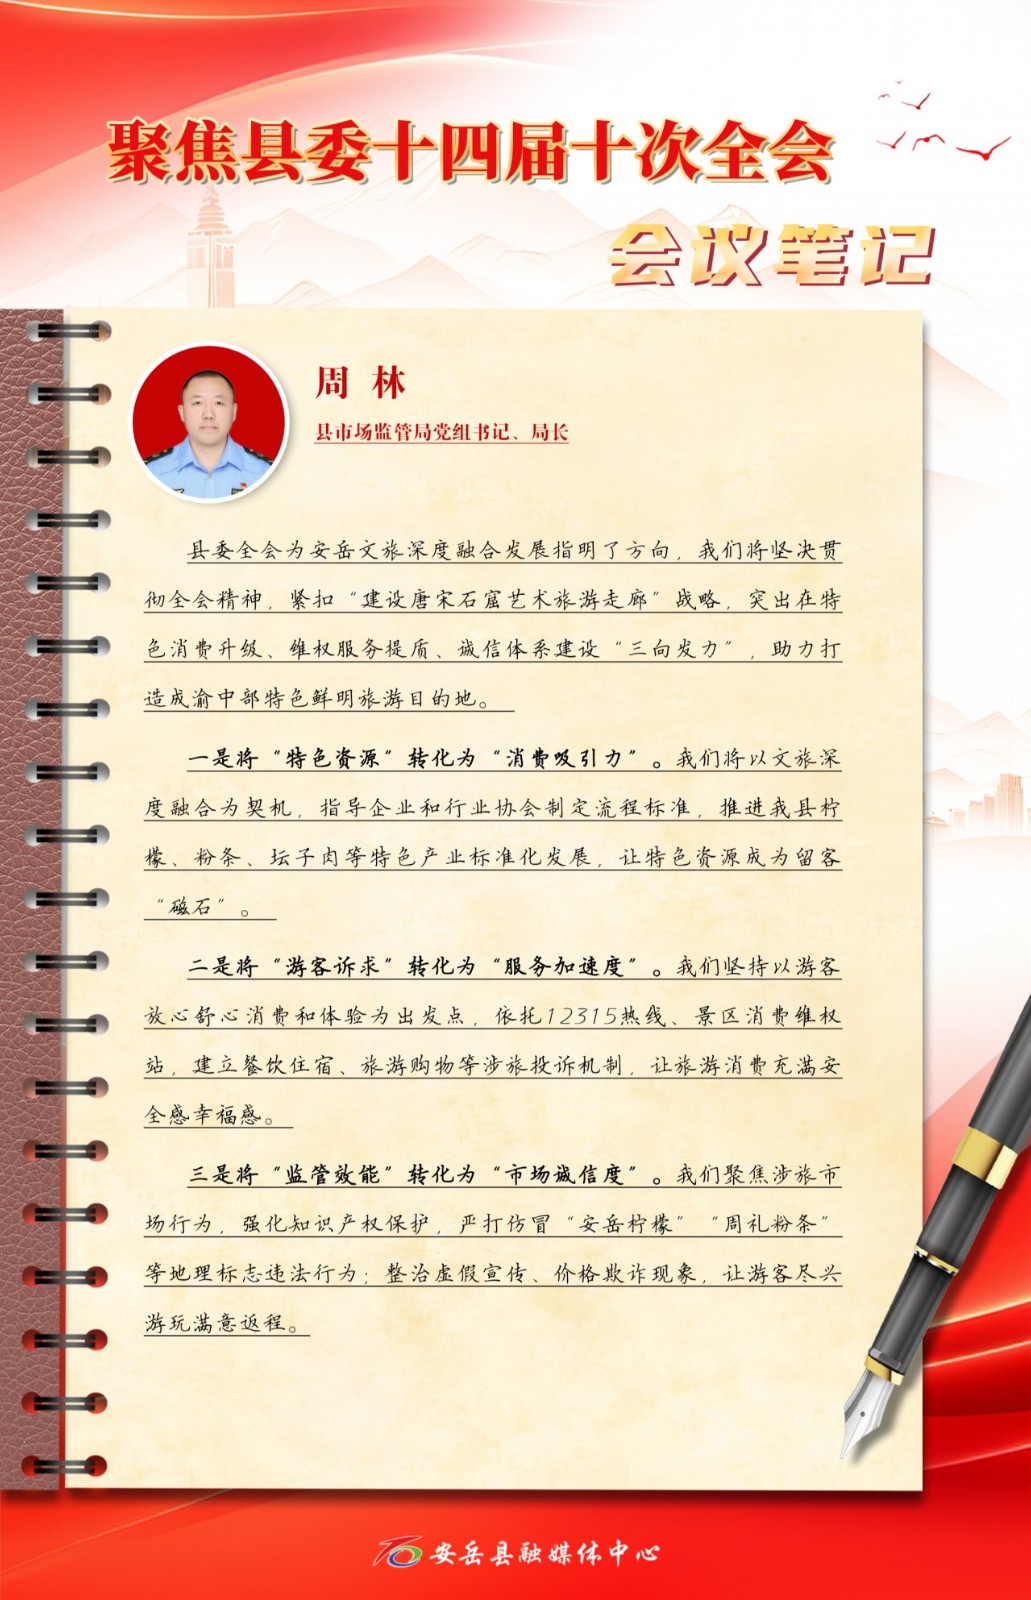 聚焦县委十四届十次全会
会议笔记
周 林
县市场监管局党组书记、局长
县委全会为安岳文旅深度融合发展指明了方向，我们将坚决贯
彻全会精神，紧扣“建设唐宋石窟艺术旅游走廊”战略，突出在特
色消费升级、维权服务提质、诚信体系建设“三向发力”，助力打
造成渝中部特色鲜明旅游目的地。
一是将“特色资源”转化为“消费吸引力”。我们将以文旅深
度融合为契机，指导企业和行业协会制定流程标准，推进我县柠
檬、粉条、坛子肉等特色产业标准化发展，让特色资源成为留客
“磁石”。
二是将“游客诉求”转化为“服务加速度”。我们坚持以游客
放心舒心消费和体验为出发点，依托12315热线、景区消费维权
站，建立餐饮住宿、旅游购物等涉旅投诉机制，让旅游消费充满安
全感幸福感。
三是将“监管效能”转化为“市场诚信度”。我们聚焦涉旅市
场行为，强化知识产权保护，严打仿冒“安岳柠檬”“周礼粉条”
等地理标志违法行为；整治虚假宣传、价格欺诈现象，让游客尽兴
游玩满意返程。
安岳县融媒体中心